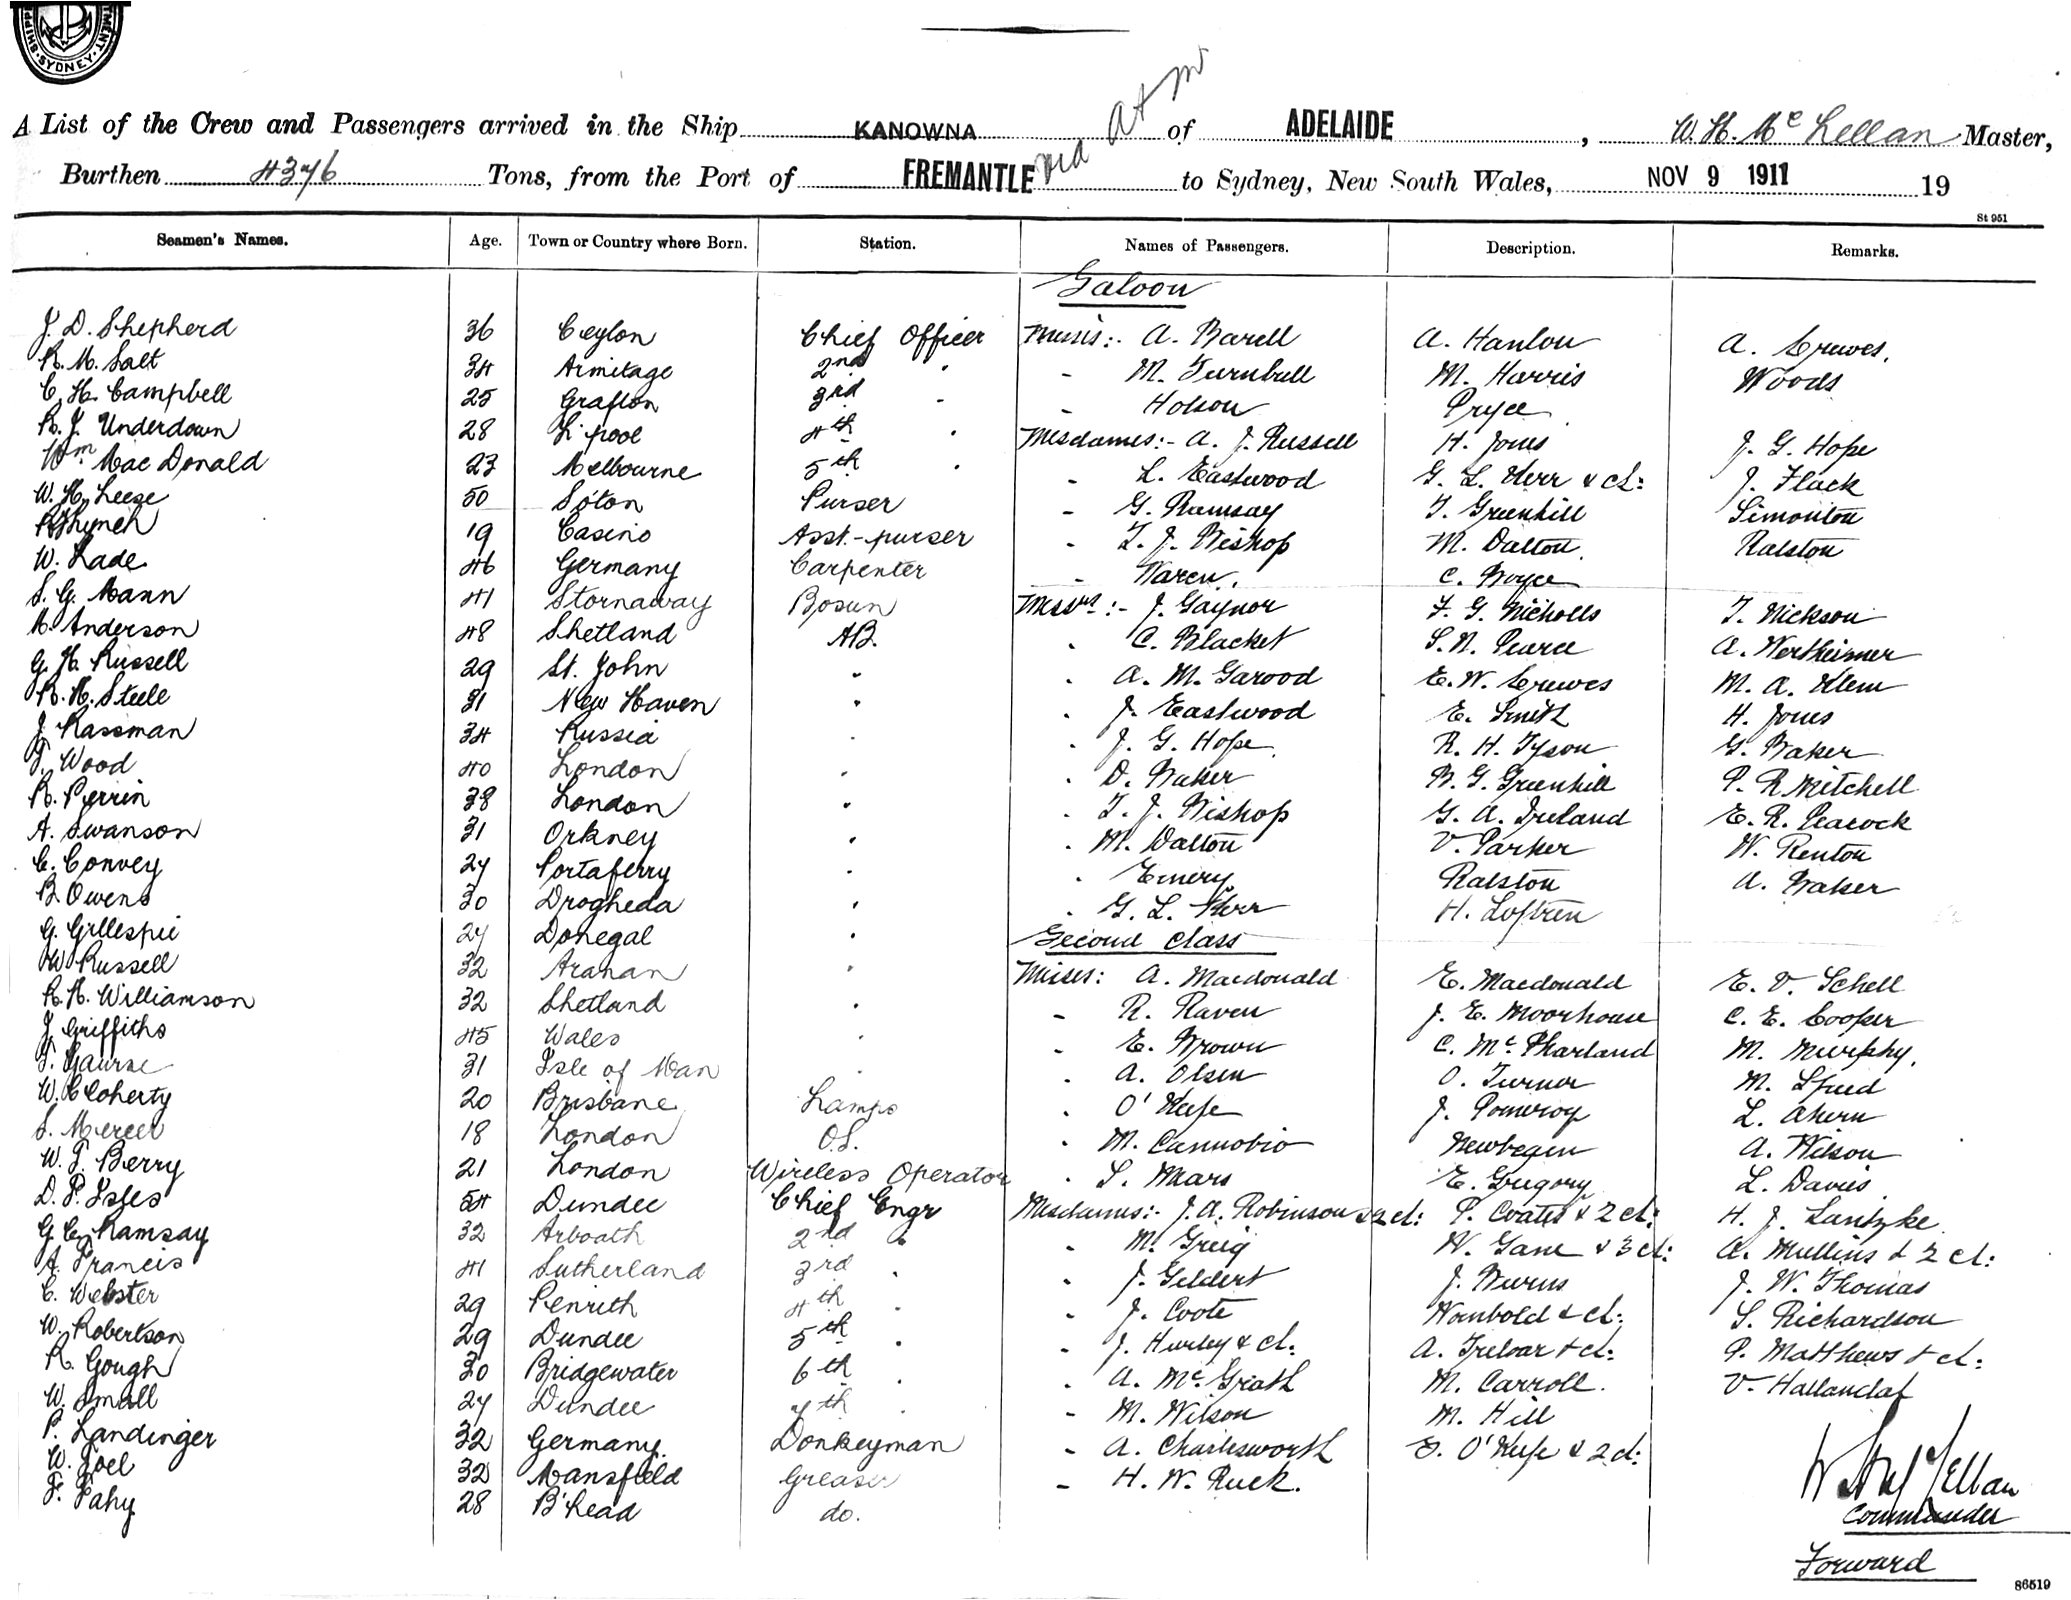 MENT. SHIPP
SYDNEY.
A List of the Crew and Passengers arrived in the Ship KANOWNA via A + M of ADELAIDE, W. H. Mc Lellan Master,
Burthen 4376 Tons, from the Port of FREMANTLE to Sydney, New South Wales, NOV 9 1911 19
St 951
Seamen's Names. Age. Town or Country where Born. Station. Names of Passengers. Description. Remarks.
Saloon
J. D. Shepherd 36 Ceylon Chief Officer Misses:- A. Barell A. Hanlon A. Crewes,
R. M. Salt 34 Armitage 2nd " - M. Turnbull M. Harris Woods
C. H. Campbell 25 Grafton 3rd - - Hobson Pryce
R. J. Underdown 28 L'pool 4th " Mesdames:- A. J. Russell H. Jones J. G. Hope
Wm Mac Donald 23 Melbourne 5th " - L. Eastwood G. L. Kerr & ch: J. Flack
W. H. Leese 50 So'ton Purser - G. Ramsay T. Greenhill Simonton
R. Lynch 19 Casino Asst.-purser - T. J. Bishop M. Dalton. Ralston
W. Lade 46 Germany Carpenter - Waren. C. Boyce
S. G. Mann 41 Stornaway Bosun Messrs:- J. Gaynor F. G. Nicholls T. Nickson
M. Anderson 48 Shetland AB. " C. Blacket S. N. Pearce A. Wertheimer
G. H. Russell 29 St. John " " A. M. Garood E. W. Crewes M. A. Klem
R. H. Steele 31 New Haven " " J. Eastwood E. Smith H. Jones
J. Rassman 34 Russia " " J. G. Hope R. H. Tyson G. Baker
T. Wood 40 London " " D. Baker B. G. Greenhill P. R Mitchell
R. Perrin 38 London " " T. J. Bishop G. A. Ireland E. R. Peacock
A. Swanson 31 Orkney " " M. Dalton V. Parker W. Renton
C. Convey 27 Portaferry " " Emery Ralston A. Baker
B. Owens 30 Drogheda " " G. L. Kerr H. Loftren
G. Gillespie 27 Donegal " Second Class
W Russell 32 Arahan " Misses: A. Macdonald E. Macdonald E. V. Schell
R. R. Williamson 32 Shetland " - R. Raven J. E. Moorhouse C. E. Cooper
J. Griffiths 45 Wales " - E. Brown C. Mc Pharland M. Murphy,
31 Isle of Man " - A. Olsen O. Turner M.
W. C Coherty 20 Brisbane Lamps " O'Keefe J. Pomeroy L. Ahern
S. Mercer 18 London O.S. " M. Cannobio Newbegin A. Wilson
W. T. Berry 21 London Wireless Operator " S. Mars E. Gregory L. Davies
D. P. Isles 54 Dundee Chief Engr Mesdames:- J. A. Robinson & 2 ch: P. Coates & 2 ch: H. J. Lantzke
G. C. Ramsay 32 Arboath 2nd " " M. Greig W. Gane & 3 ch: A. Mullins & 2 ch:
A. Francis 41 Sutherland 3rd " " J. Geldert J. Burns J. W. Thomas
C. Webster 29 Penrith 4th " " J. Coote Wombold & ch: S. Richardson
W. Robertson 29 Dundee 5th " - J. Hurley & ch: A. Trebar & ch: P. Matthews & ch:
R. Gough 30 Bridgewater 6th " " A. Mc Grath M. Carroll. V. Hallandaf
W. Small 27 Dundee 7th " - M. Wilson M. Hill
P. Landinger 32 Germany. Donkeyman - A. Charlesworth E. O'Keefe & 2 ch:
W. Joel 32 Mansfield Greaser - H. W. Ruck.
F. Fahy 28 B'head do.
W H McLellan
Commander
Forward
86519